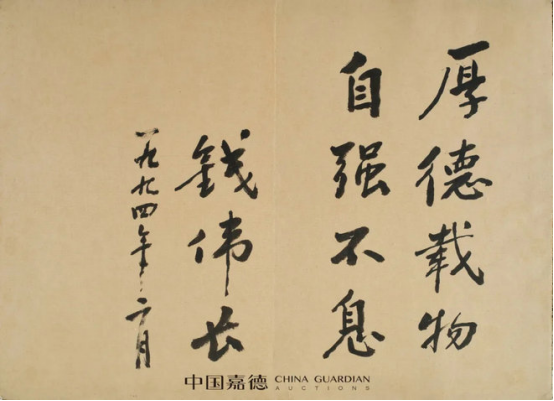 厚德载物
自强不息
钱伟长
一九九四年二月
中国嘉德 CHINA GUARDIAN
AUCTIONS